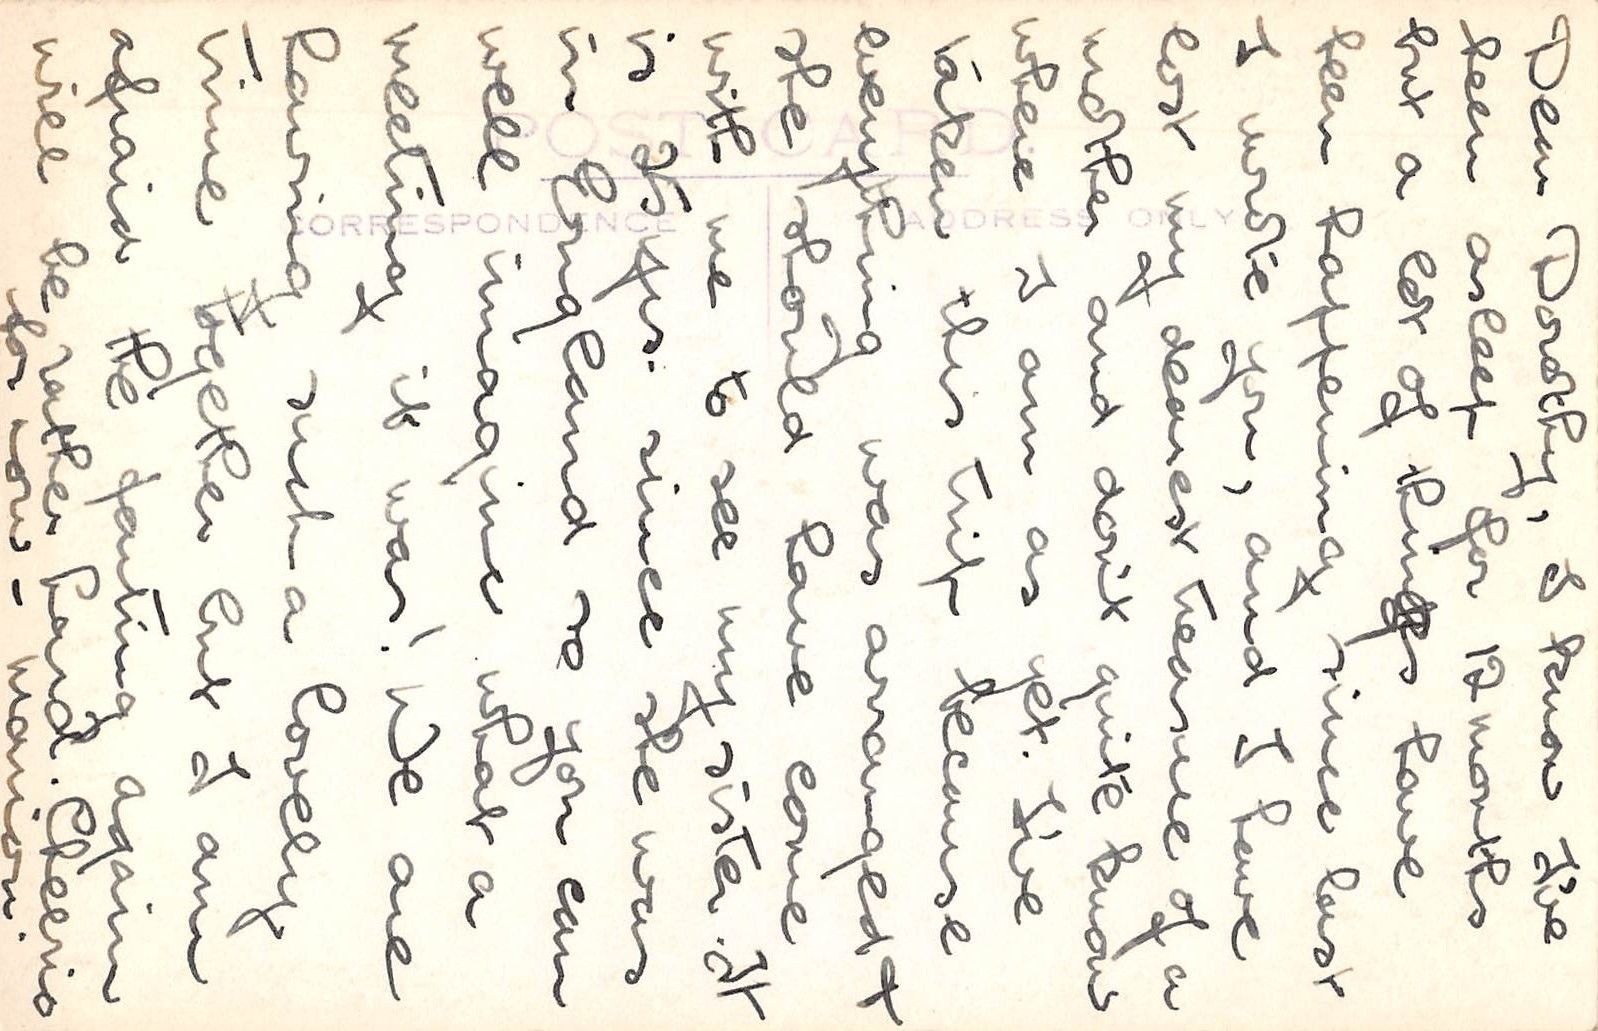 POST CARD.
CORRESPONDENCE
ADDRESS ONLY
Dear Dorothy, I know I've
been asleep for 12 months
but a lot of things have
been happening since last
I wrote you, and I have
lost my dearest treasure of a
mother and don't quite know
where I am as yet. I've
taken this trip because
everything was arranged +
she should have come
with me to see my sister. It
is 25 yrs. since she was
in England so you can
well imagine what a
meeting it was! We are
having such a lovely
time together but I am
afraid the parting again
will be rather hard. Cheerio
for now - Marion.